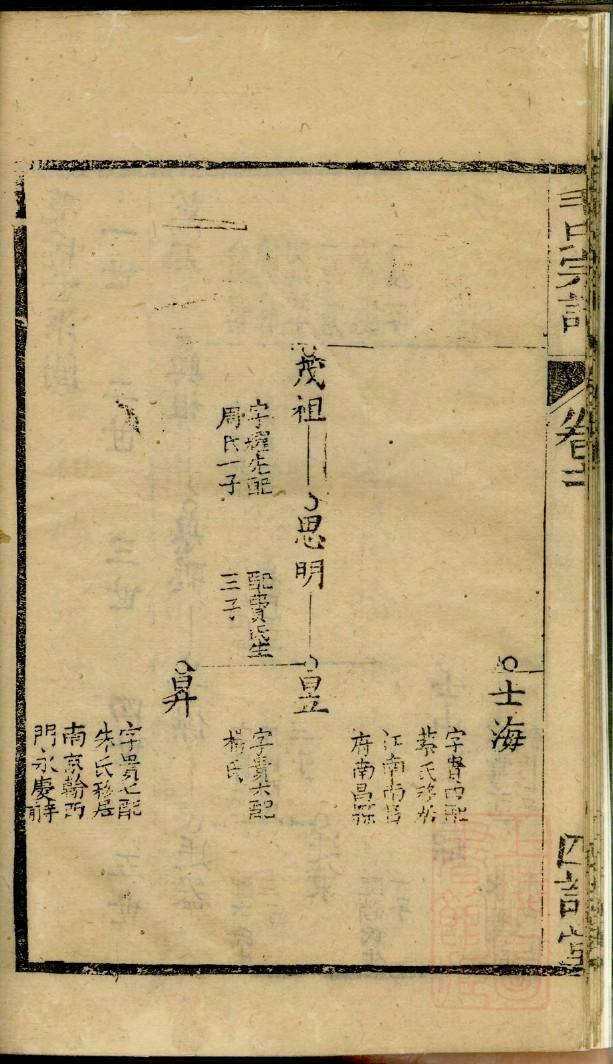 宗譜
卷二
四訓堂
士海
字貴四配
蔡氏移居
江南南昌
府南昌縣
茂祖
字耀先配
周氏一子
思明
配費氏生
三子
昱
字貴六配
楊氏
昇
字貴七配
朱氏移居
南京翰西
門永慶